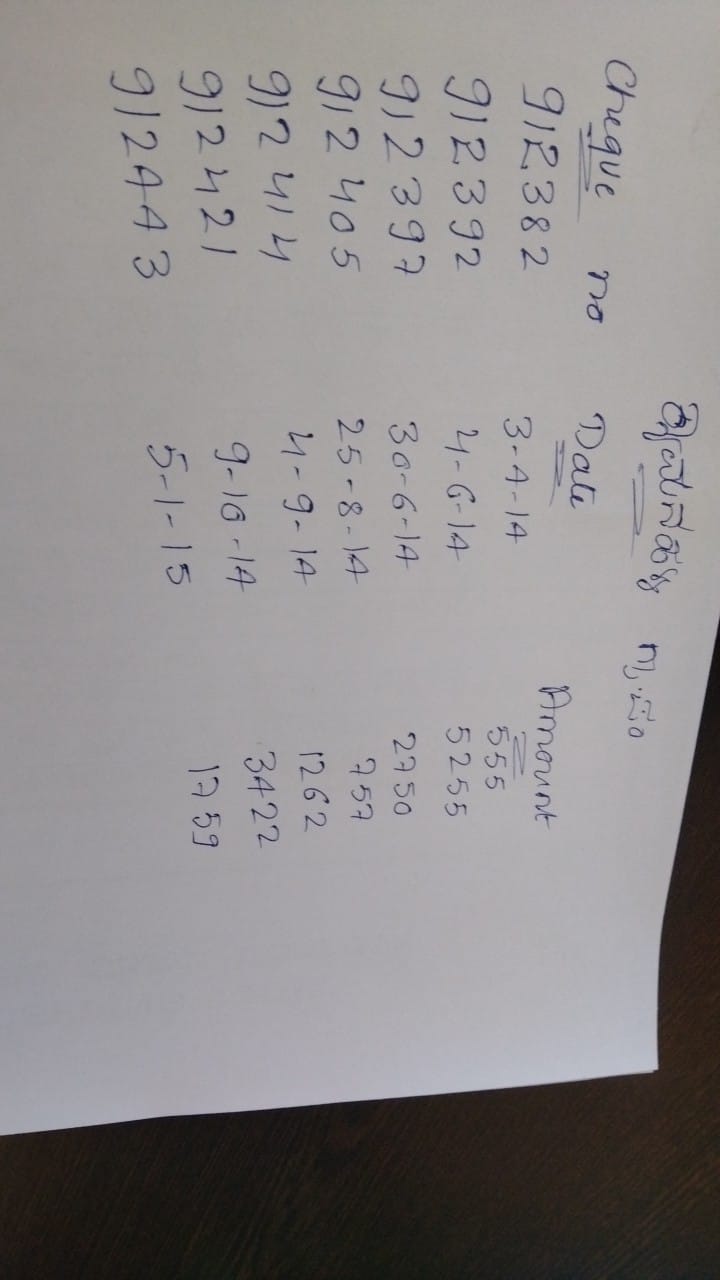 Cheque no Date Amount
912382 3-4-14 555
912392 4-6-14 5255
912397 30-6-14 2750
912405 25-8-14 757
912414 4-9-14 1262
912421 9-10-14 3422
912443 5-1-15 1759